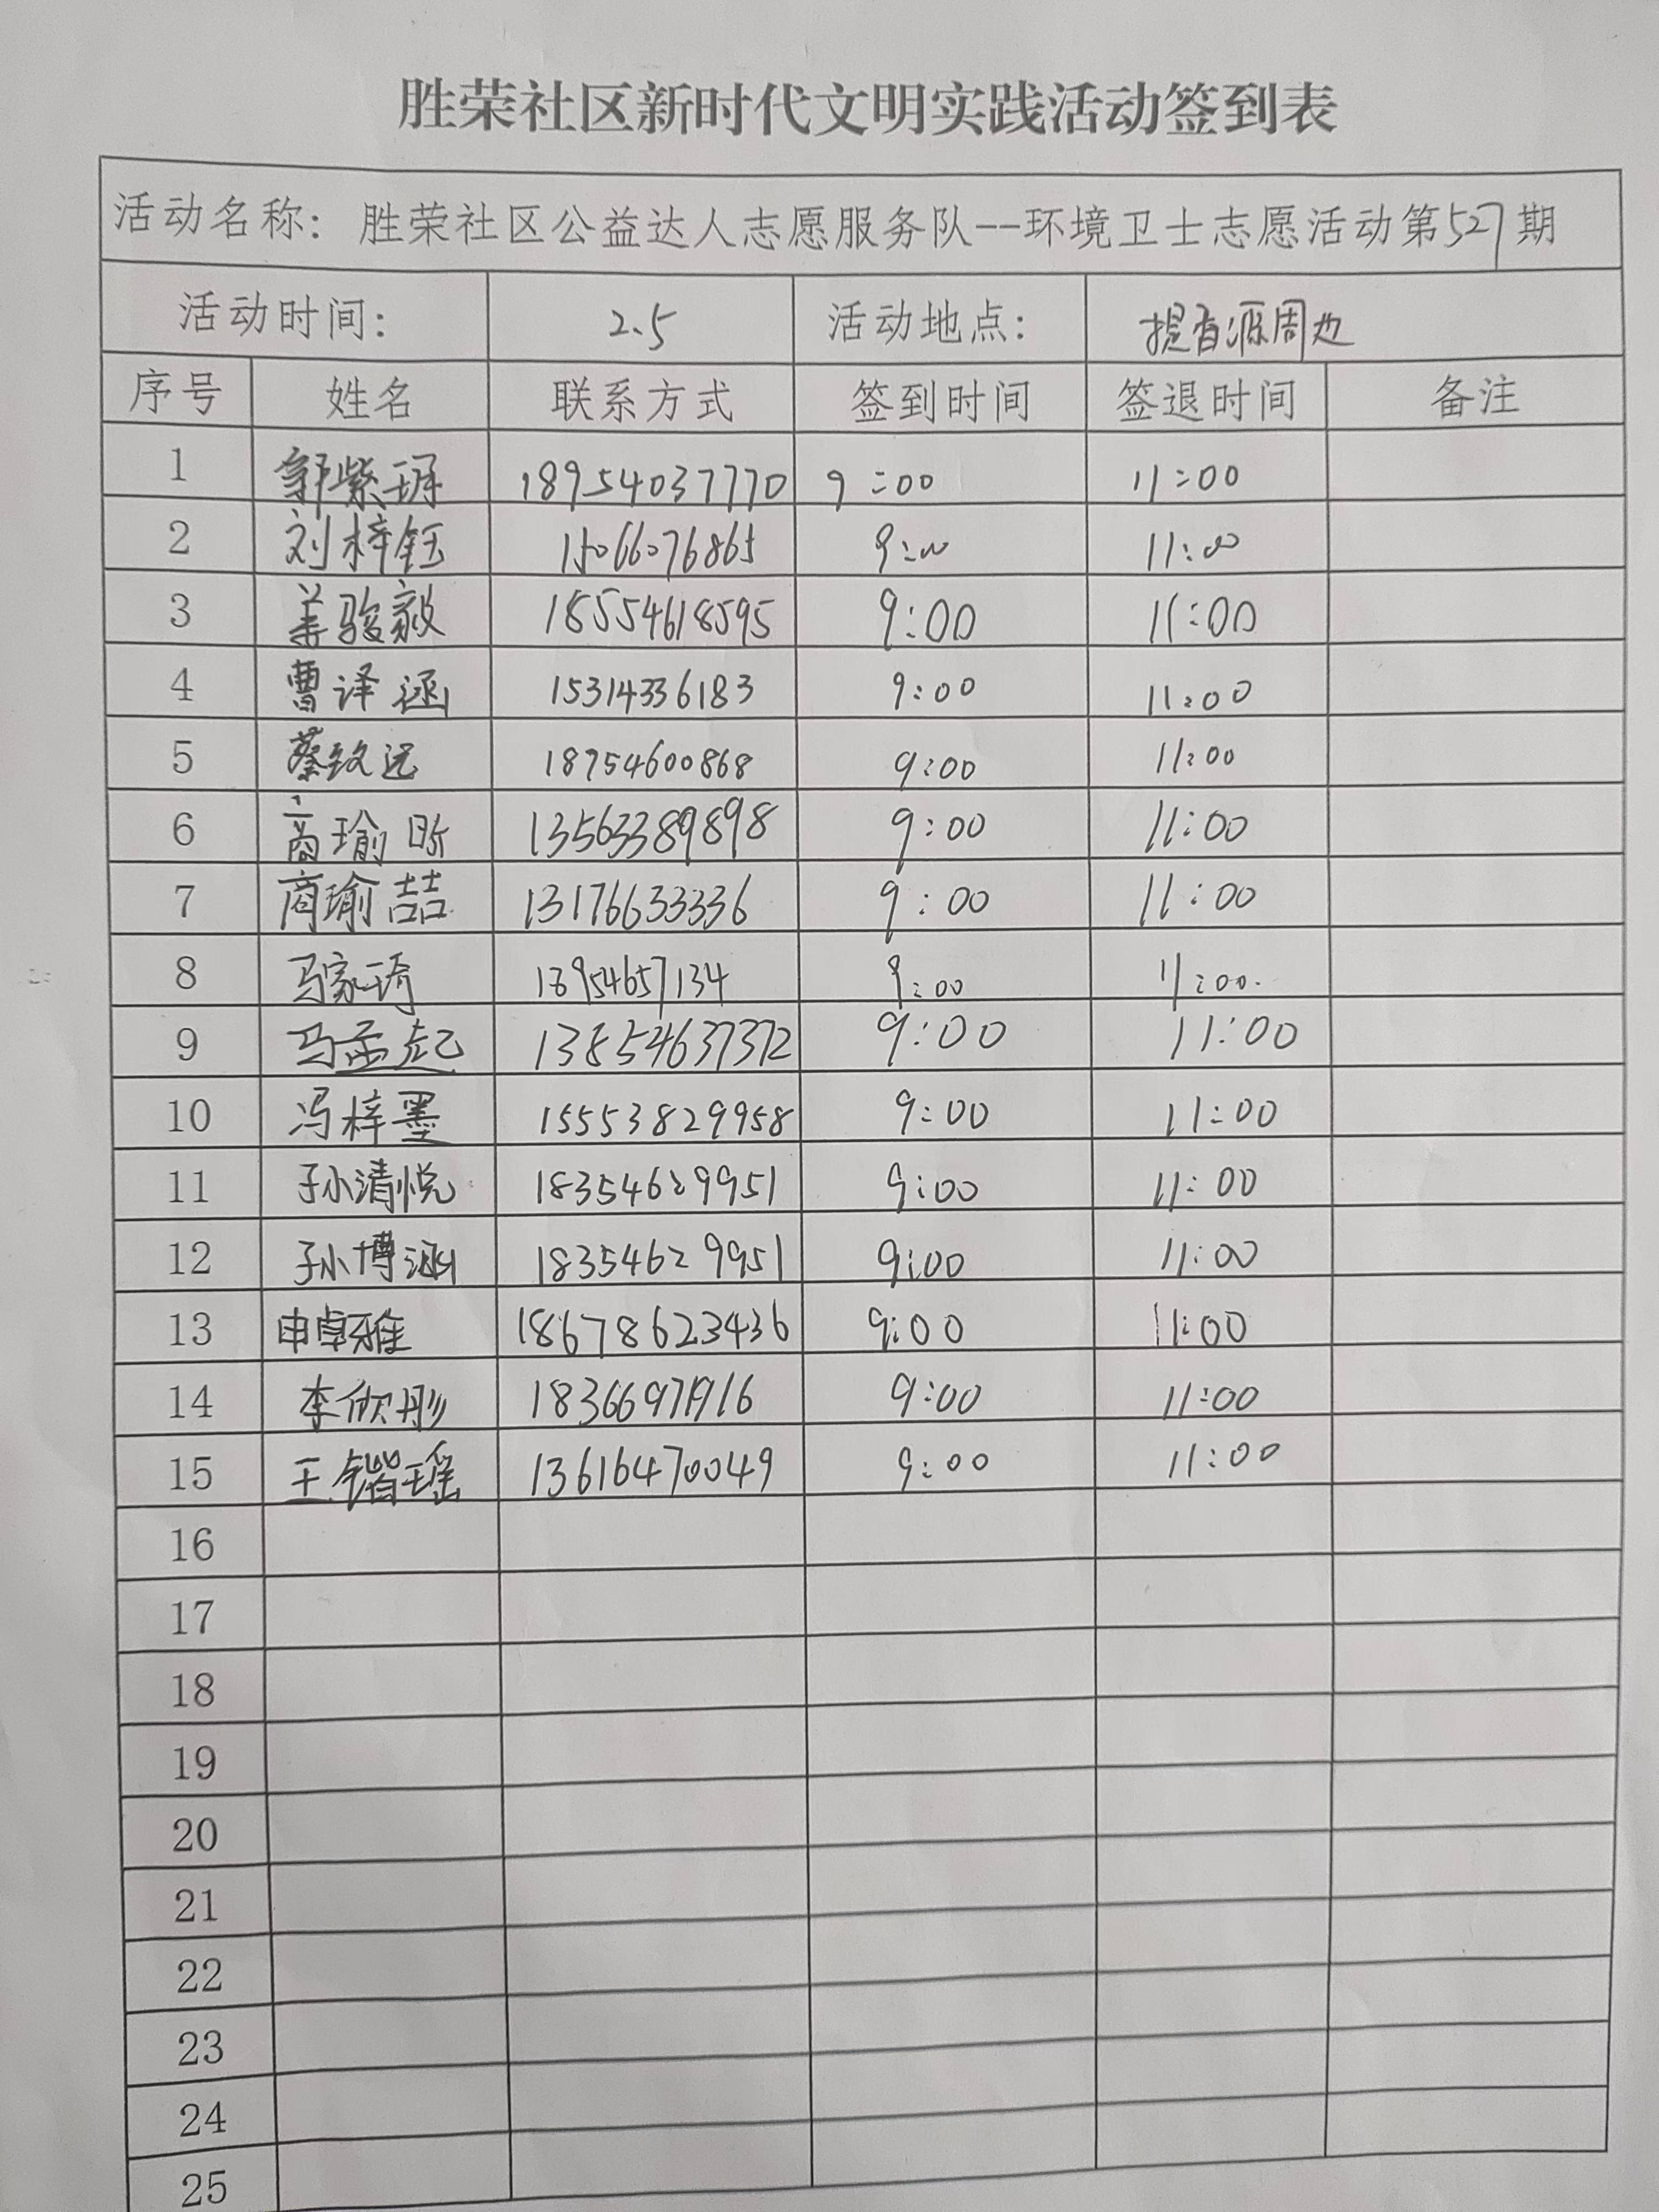 胜荣社区新时代文明实践活动签到表
活动名称：胜荣社区公益达人志愿服务队--环境卫士志愿活动第527期
活动时间： 2.5 活动地点： 提香源周边
序号 姓名 联系方式 签到时间 签退时间 备注
1 郭紫 18954037770 9:00 11:00
2 刘梓钰 15066076865 9:00 11:00
3 姜骏毅 18554618595 9:00 11:00
4 曹译涵 15314336183 9:00 11:00
5 蔡致远 18754600868 9:00 11:00
6 商瑜昕 13563389898 9:00 11:00
7 商瑜喆 13176633336 9:00 11:00
8 马家琦 18954657134 9:00 11:00.
9 马孟起 13854637372 9:00 11:00
10 冯梓墨 15553829958 9:00 11:00
11 孙清悦 18354629951 9:00 11:00
12 孙博涵 18354629951 9:00 11:00
13 申卓雅 18678623436 9:00 11:00
14 李欣彤 18366971916 9:00 11:00
15 王锴瑶 13616470049 9:00 11:00
16
17
18
19
20
21
22
23
24
25